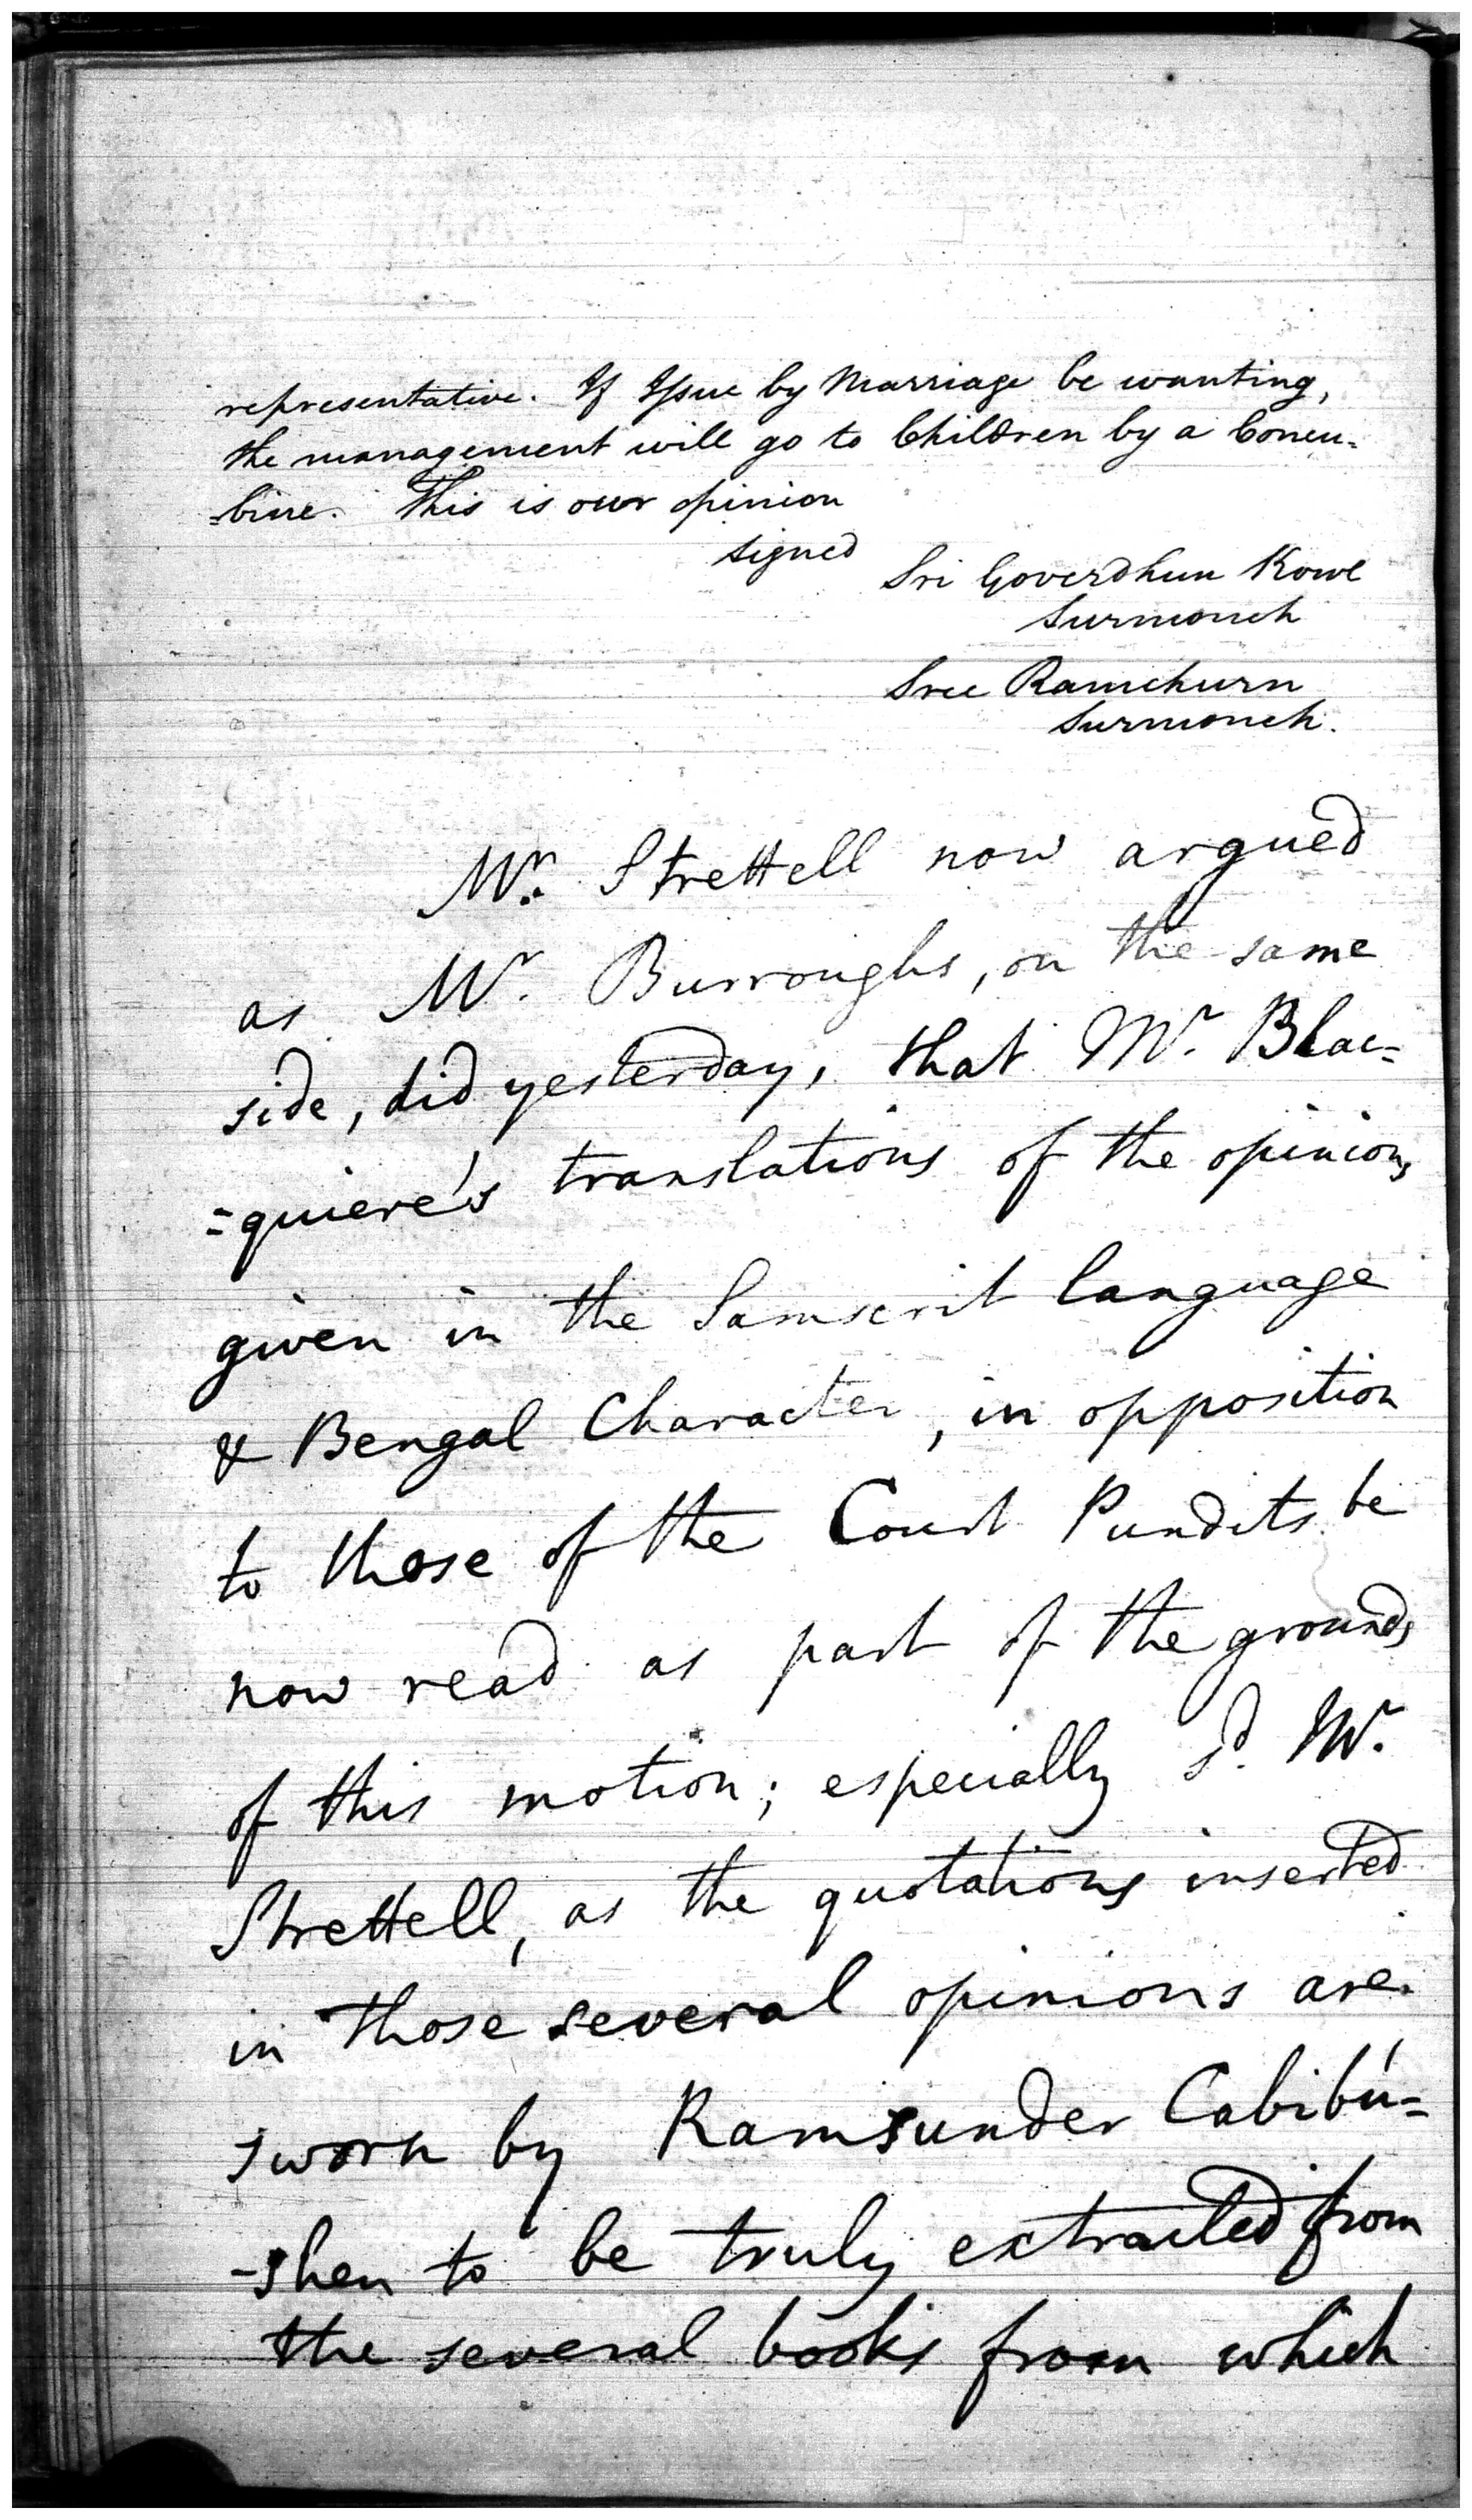 representative. If Issue by Marriage be wanting,
the management will go to Children by a Concu=
=bine. This is our opinion
signed
Sri Goverdhun Kowl
Surmoneh
Sree Ramchurn
Surmoneh.
Mr. Strettell now argued
as Mr. Burroughs, on the same
side, did yesterday, that Mr. Blac=
=quiere's translations of the opinions
given in the Samscrit language
& Bengal Character, in opposition
to those of the Court Pundits be
now read as part of the grounds
of this motion; especially sd. Mr.
Strettell, as the quotations inserted
in those several opinions are
sworn by Ramsunder Cabibú=
-shen to be truly extracted from
the several books from which